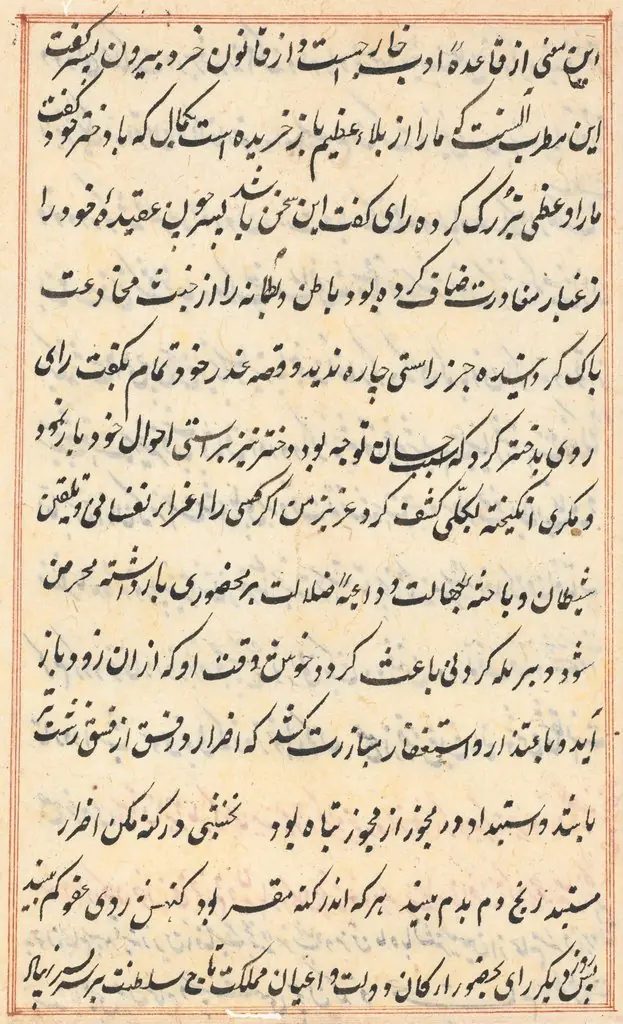 این معنی از قاعدهٔ ادب خارجست و از قانون خرد بیرون پسر گفت
این مطرب آنست که ما را از بلاء عظیم باز خریده است بکمال که با دختر خود گفت
ما را وعظی بزرگ کرده رای گفت این سخن باشد پسر چون عقیدهٔ خود را
ز غبار مغاورت صاف کرده بود باطن و بطانه را از خبث مخادعت
پاک گردانیده جز راستی چاره ندید و قصه غدر خود تمام بگفت رای
روی بدختر کرد که سبب احسان توجه بود دختر نیز براستی احوال خود باز نمود
و مکری انگیخته بکلی کشف کرد عزیز من اگر کسی را اغرار نفسانی و تلقین
شیطان و باحثهٔ جهالت و داعیهٔ ضلالت بر محضوری بارداشته محرص
شود و بر بله کردنی باعث گردد خوش وقت او که از ان زود باز
آید و باعتذار و استغفار مبازرت کند که اضرار در فسق از فسق زشت تر
باشد و استبداد در مجوز از مجوز تباه بود نخشبی در گنه مکن اضرار
مستبد رنج دم بدم بیند هر که اندر گنه مقر بود گنهش روی عفو کم بیند
پس روز دیگر رای بحضور ارکان دولت و اعیان مملکت تاج سلطنت بر سر پسر نهاد